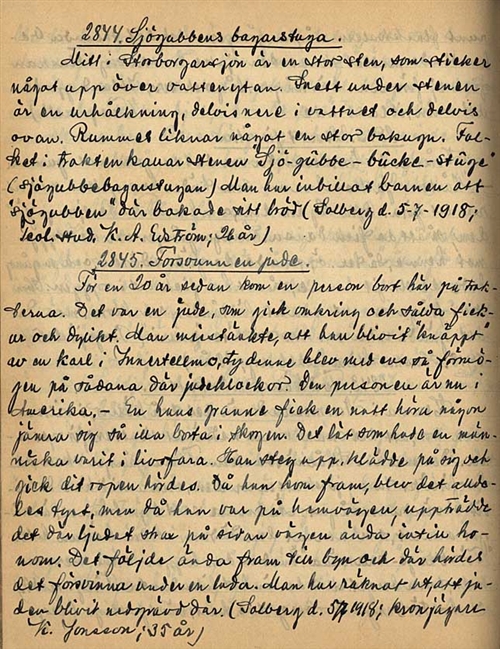 2844. Sjögubbens bagarstuga.
Mitt i Storborgarsjön är en stor sten, som sticker
något upp över vattenytan. Snett under stenen
är en urhålkning, delvis nere i vattnet och delvis
ovan. Rummet liknar något en stor bakugn. Fol-
ket i trakten kallar stenen "Sjö-gûbbe-bûcke-stúge"
(sjögubbebagarstugan) Man har inbillat barnen att
"sjögubben" där bakade sitt bröd (Solberg d. 5-7-1918,
teol. stud. K. A. Edström, 26 år)
2845. Försvunnen jude.
För en 20 år sedan kom en person bort här på trak-
terna. Det var en jude, som gick omkring och sålde fick-
ur och dylikt. Man misstänkte, att han blivit "knäppt"
av en karl i Innertellmo, ty denne blev med ens så förmö-
gen på sådana där judeklockor. Den personen är nu i
Amerika. - En hans granne fick en natt höra någon
jämra sig så illa borta i skogen. Det lät som hade en män-
niska varit i livsfara. Han steg upp, klädde på sig och
gick dit ropen hördes. Då han kom fram, blev det allde-
les tyst, men då han var på hemvägen, uppträdde
det där ljudet strax på sidan vägen ända intill ho-
nom. Det följde ända fram till byn och där hördes
det försvinna under en lada. Man har räknat ut, att ju-
den blivit nedgrävd där. (Solberg d. 5/7 1918; kronjägare
K. Jonsson, 35 år)